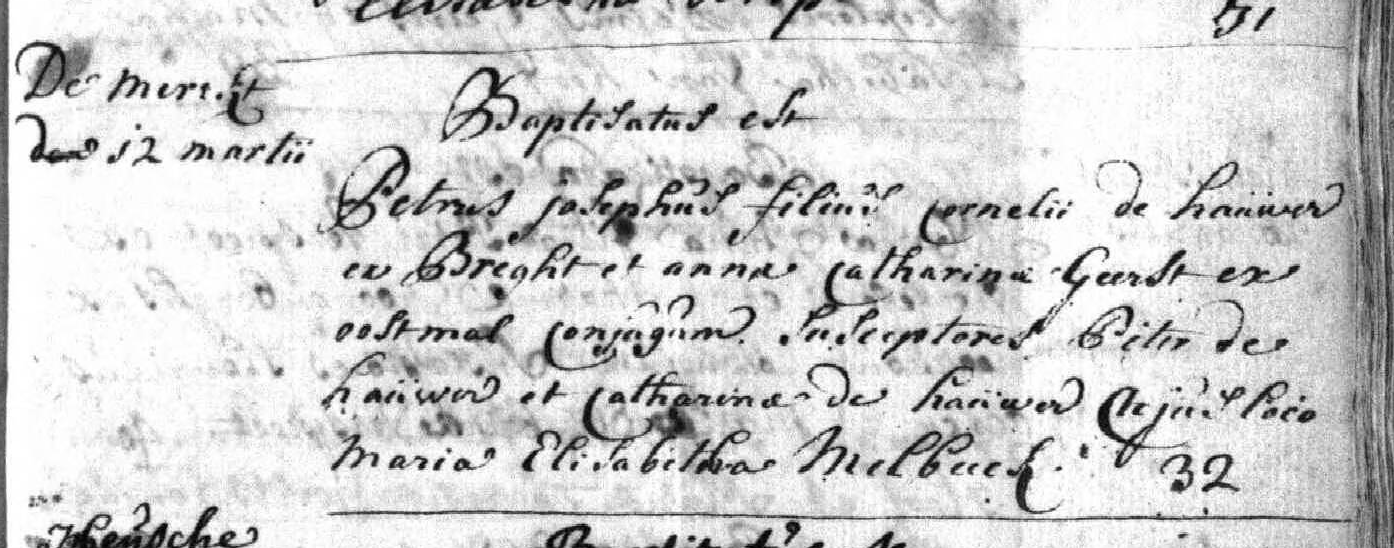 31
De merckt
den 12 martii
Baptisatus est
Petrus josephus filius Cornelii de haüwer
ex Breght et annæ Catharinæ Geerst ex
oostmal Conjugum. Susceptores Peter de
haüwer et Catharina de haüwer Ejus loco
Maria Elisabetha Melbeeck. 32